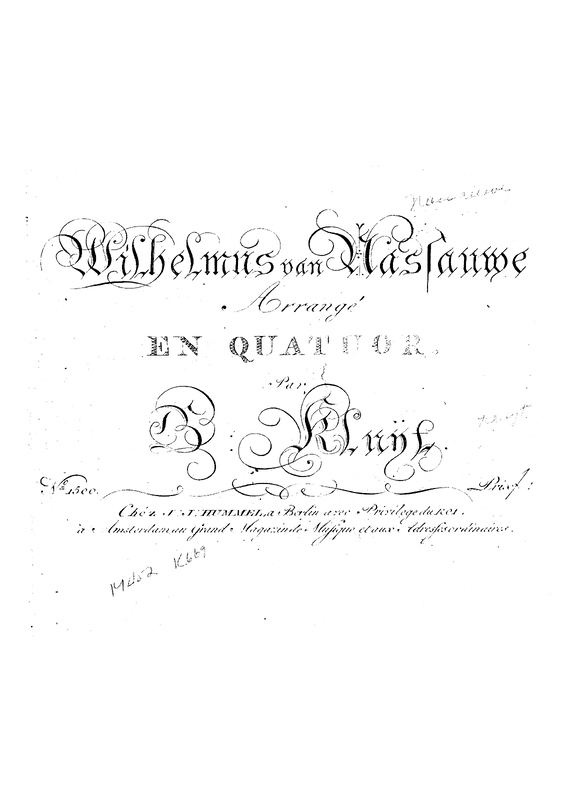 Wilhelmus van Nassauwe
Arrangé
EN QUATUOR.
Par
B: Kluÿf.
No. 1500. Prix f:
Chéz J. J. HUMMEL, a Berlin avec Privilege du ROI.
à Amsterdam, au Grand Magazin de Musique et aux Adresses ordinaires.
M452 K669